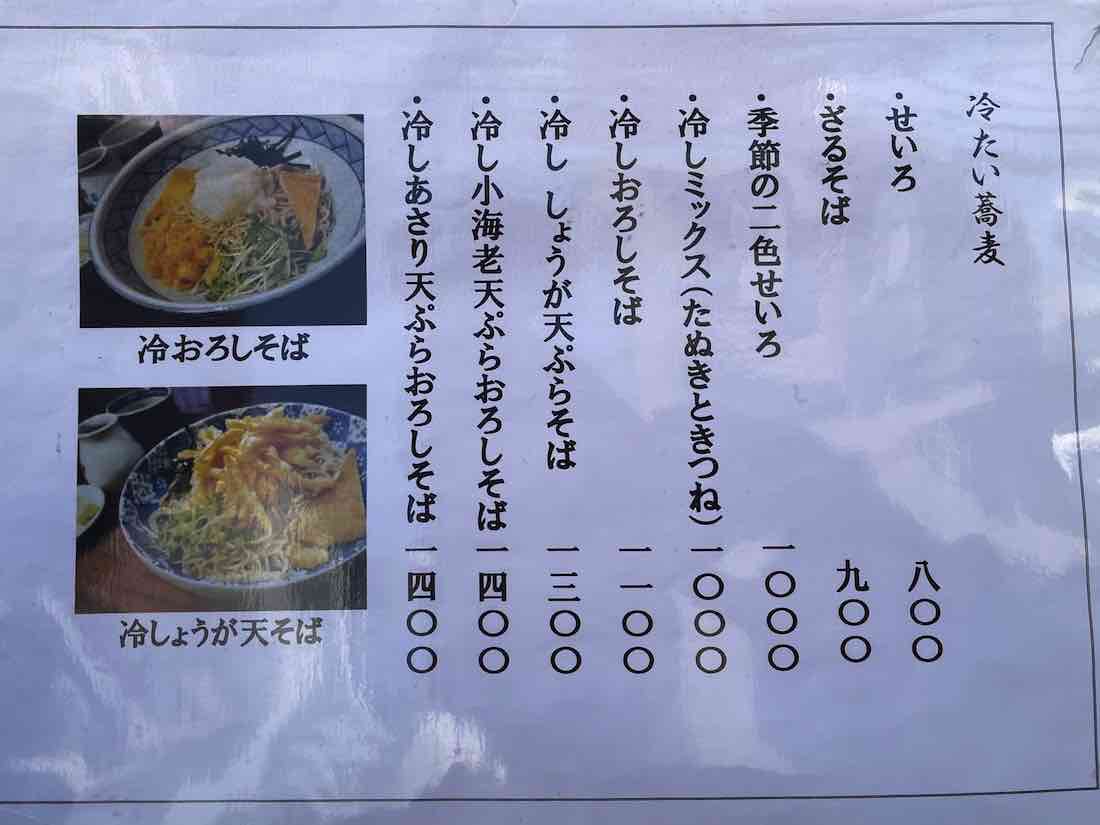 冷たい蕎麦
・せいろ 八〇〇
・ざるそば 九〇〇
・季節の二色せいろ 一〇〇〇
・冷しミックス(たぬきときつね) 一〇〇〇
・冷しおろしそば 一一〇〇
・冷し しょうが天ぷらそば 一三〇〇
・冷し小海老天ぷらおろしそば 一四〇〇
・冷しあさり天ぷらおろしそば 一四〇〇
冷おろしそば
冷しょうが天そば